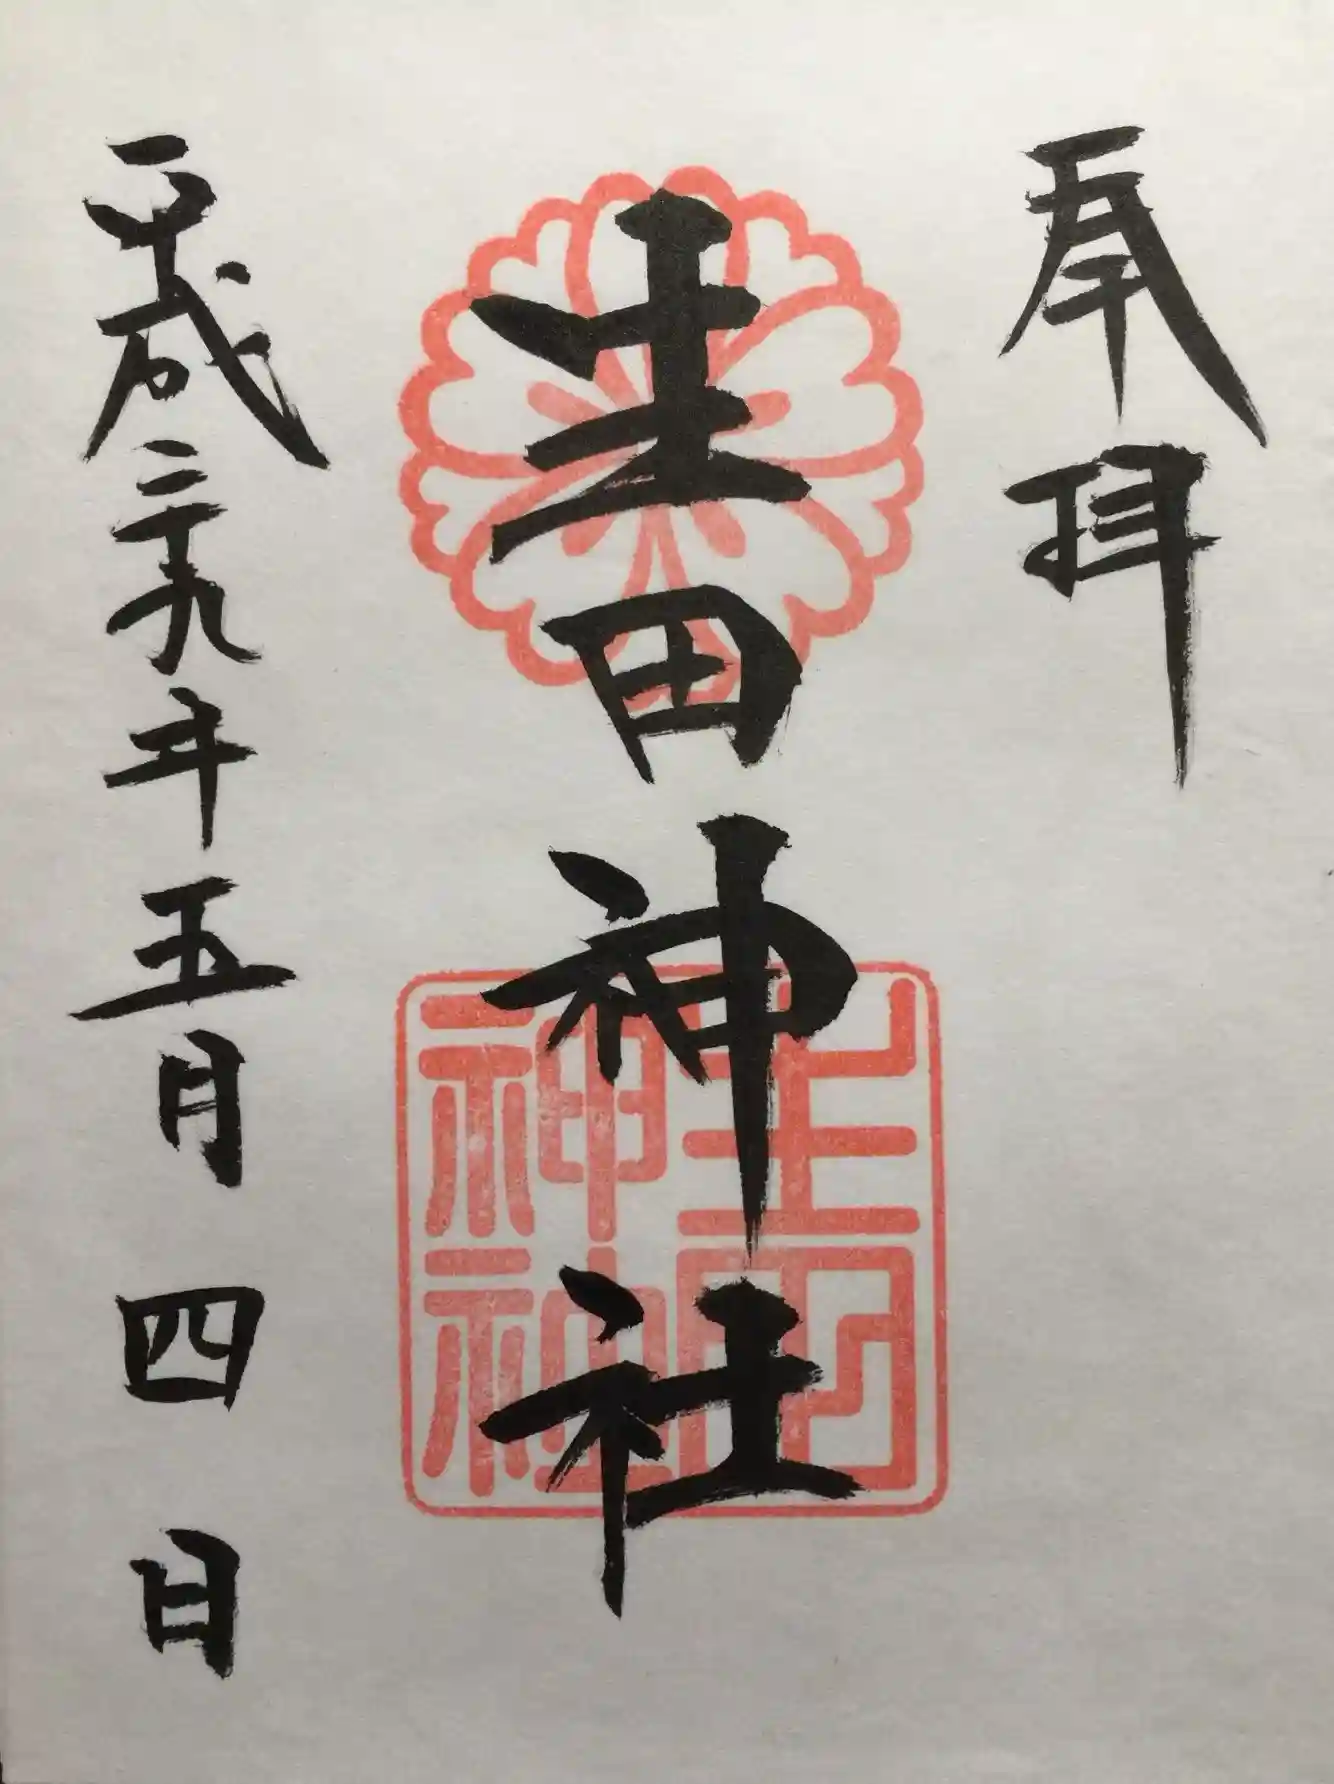 奉拝
生田神社
生田神社
平成二十九年五月四日